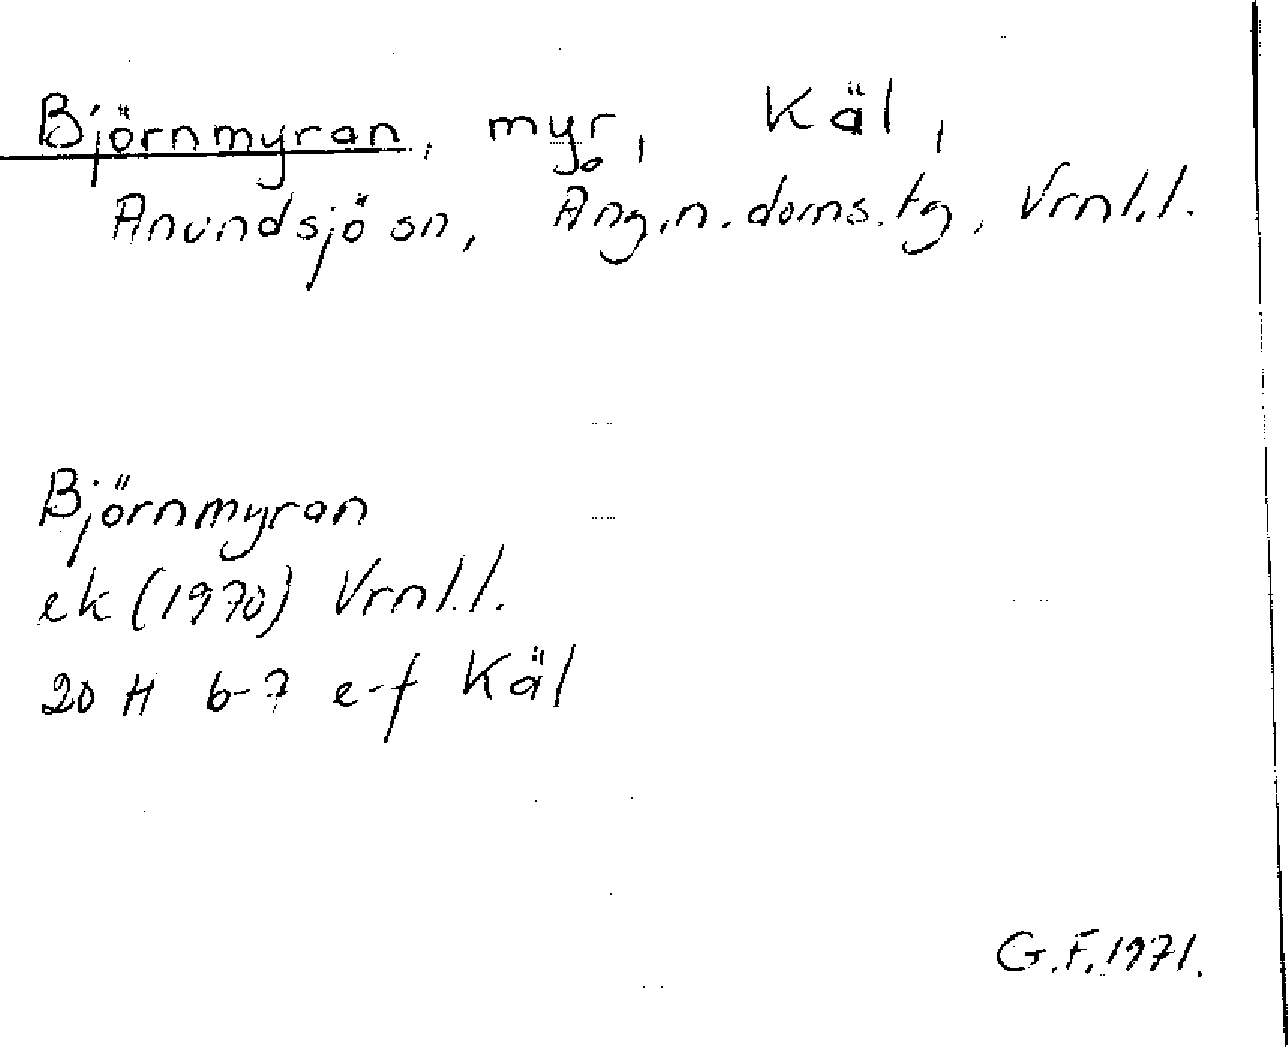 Björnmyran, myr, Käl,
Anundsjö sn, Ång.n.doms.tg, Vrnl.l.
Björnmyran
ek (1970) Vrnl.l.
20 H 6-7 e-f Käl
G.F.1971.